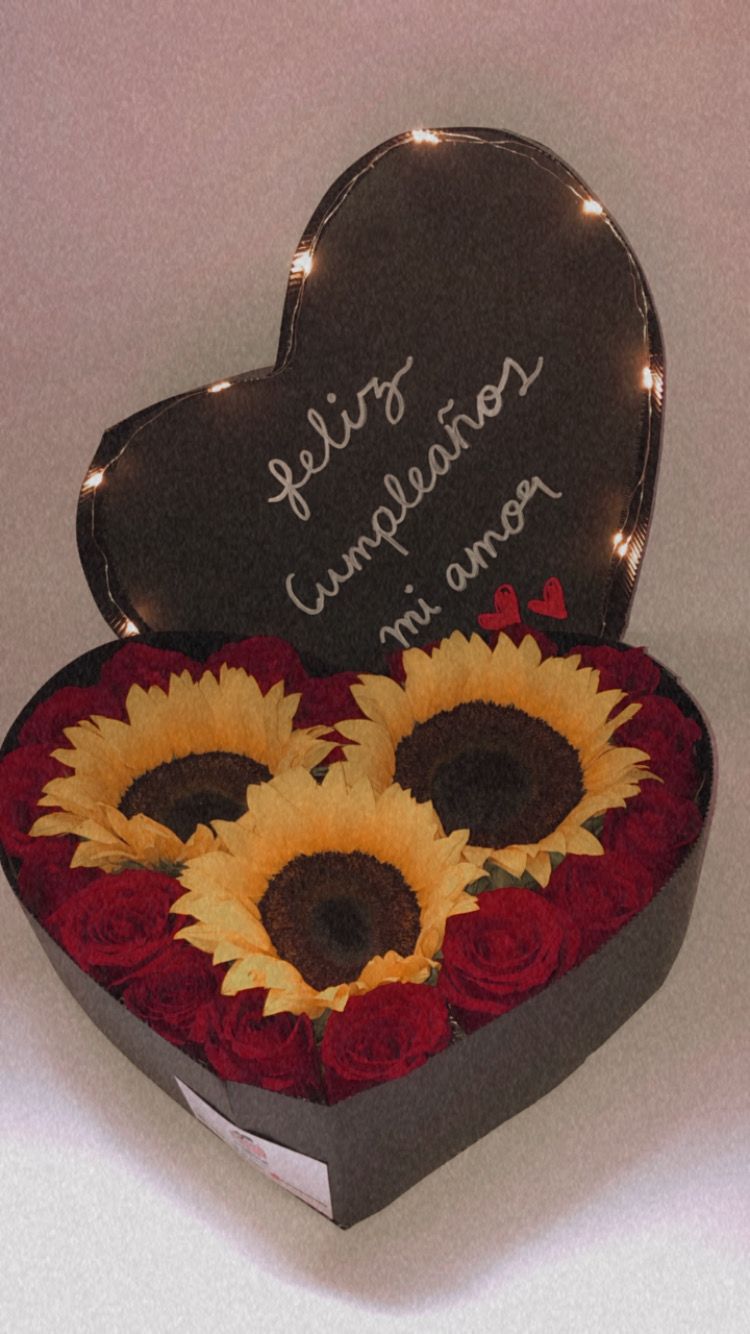 feliz
Cumpleaños
mi amor